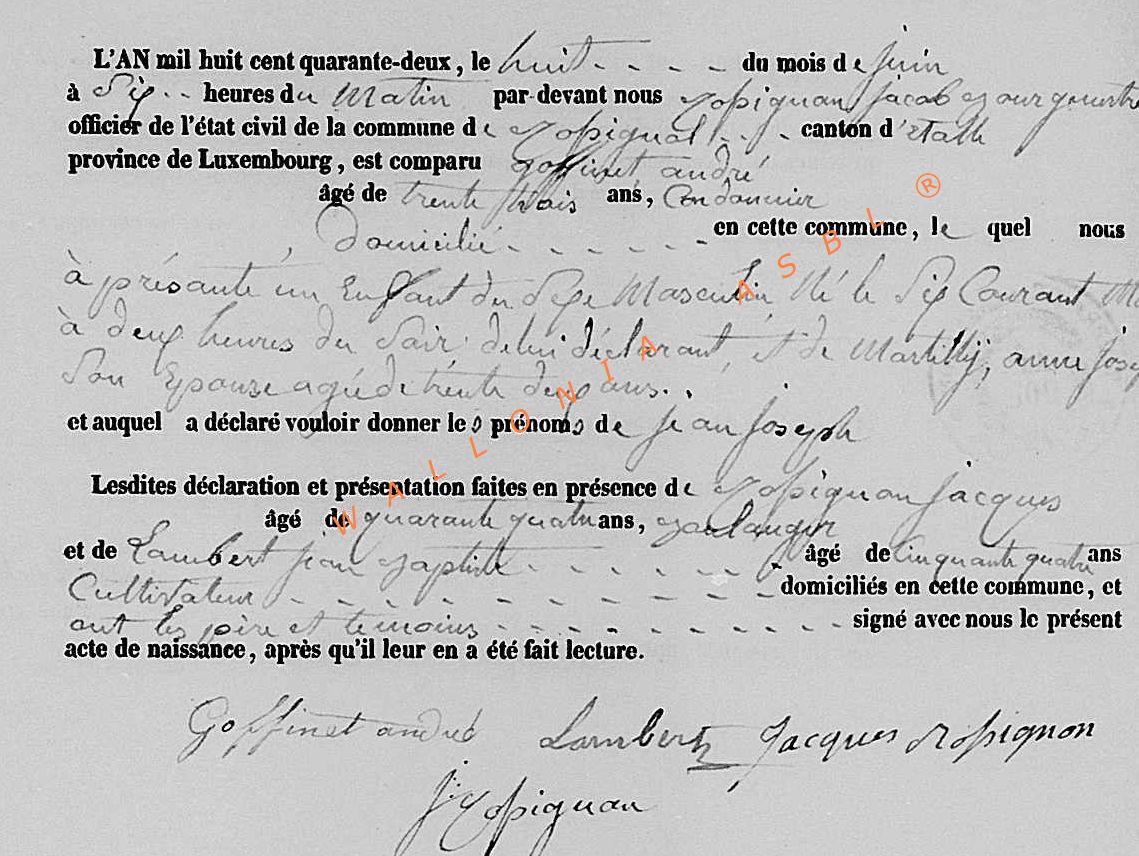 L'AN mil huit cent quarante-deux, le huit - - - - du mois de juin
à Six - - heures du Matin par-devant nous Jacob
officier de l'état civil de la commune de canton d'étalle
province de Luxembourg, est comparu goffinet andré
âgé de trente trois ans, Cordonnier
Domicilié - - - - - - en cette commune, le quel nous
à présanté un Enfant du Sexe Masculin Né le Six Courant
à deux heures du Soir de lui déclarant et de Martilly, anne
Son Epouse agée de trente deux ans
et auquel a déclaré vouloir donner les prénoms de jean joseph
Lesdites déclaration et présentation faites en présence de Jacques
âgé de quarante quatre ans,
et de Lambert jean Baptiste - - - - - - - âgé de Cinquante quatre ans
Cultivateur - - - - - - - - - domiciliés en cette commune, et
ont les père et témoins - - - - - - - - - - signé avec nous le présent
acte de naissance, après qu'il leur en a été fait lecture.
Goffinet andré Lambert Jacques Ropignon
WALLONIA ASBL ®